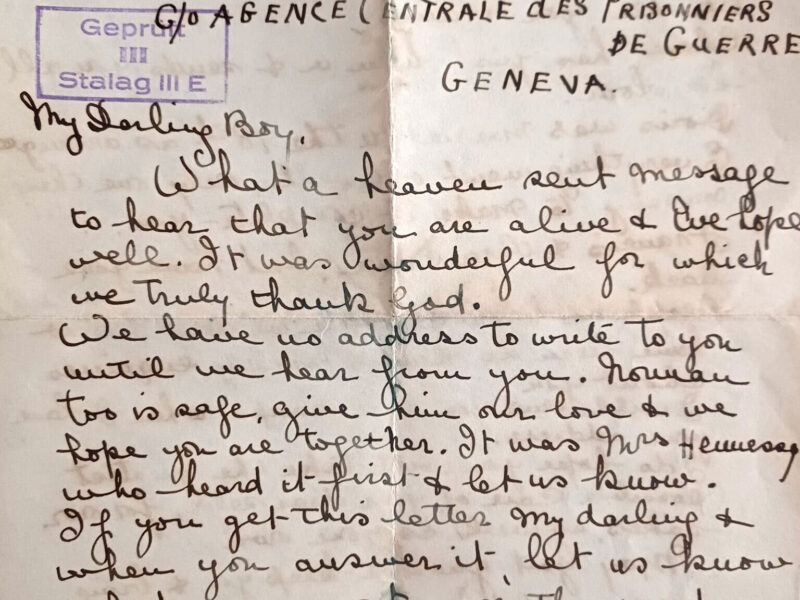 C/O AGENCE CENTRALE des PRISONNIERS
DE GUERRE
GENEVA.
Geprüft
III
Stalag III E
My Darling Boy.
What a heaven sent message
to hear that you are alive & we hope
well. It was wonderful for which
we truly thank God.
We have no address to write to you
until we hear from you. Norman
too is safe, give him our love & we
hope you are together. It was Mrs Hennessy
who heard it first & let us know.
If you get this letter my darling &
when you answer it, let us know